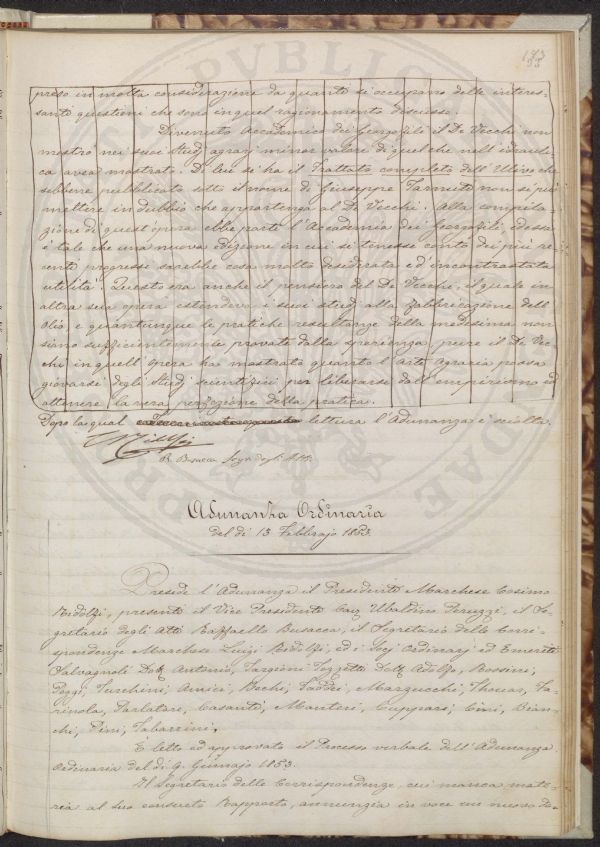 133
33
preso in molta considerazione da quanti si occupano delle interes-
santi questioni che sono in quel ragionamento discusse.
Divenuto Accademico dei Georgofili il De Vecchi non
mostrò nei suoi studj agrarj minor valore di quel che nell'idrauli-
ca avea mostrato. Di lui si ha il Trattato completo dell'Ulivo che
sebbene pubblicato sotto il nome di Giuseppe Tavanti non si può
mettere in dubbio che appartenga al De Vecchi. Alla compila-
zione di quest'opera ebbe parte l'Accademia dei Georgofili, ed essa
è tale che una nuova edizione in cui si tenesse conto dei più re-
centi progressi sarebbe cosa molto desiderata ed incontrastata
utilità. Questo era anche il pensiero del De Vecchi, il quale in
altra sua opera estendeva i suoi studj alla fabbricazione dell'
Olio, e quantunque le pratiche resultanze della medesima non
siano sufficientemente provate dalla sperienza, pure il De Vec-
chi in quell'opera ha mostrato quanto l'arte agraria possa
giovarsi degli studj scientifici per liberarsi dall'empirismo ed
ottenere la vera perfezione della pratica.
Dopo la qual lettura l'Adunanza è sciolta.
C. Ridolfi
R. Busacca Segr. degli Atti.
Adunanza Ordinaria
del dì 13 Febbrajo 1853.
Presede l'Adunanza il Presidente Marchese Cosimo
Ridolfi, presenti il Vice Presidente Cav. Ubaldino Peruzzi, il Se-
gretario degli Atti Raffaello Busacca, il Segretario delle Corri-
spondenze Marchese Luigi Ridolfi, ed i Socj Ordinarj ed Emeriti
Salvagnoli Dott. Antonio, Targioni Tozzetti Dott. Adolfo, Rossini,
Poggi, Turchini, Amici, Bechi, Taddei, Marzucchi, Thouar, Fa-
rinola, Parlatore, Casanti, Manteri, Cuppari, Cini, Bian-
chi, Pini, Tabarrini.
È letto ed approvato il Processo verbale dell'Adunanza
Ordinaria del dì 9. Gennajo 1853.
Il Segretario delle Corrispondenze, cui manca mate-
ria al suo consueto Rapporto, annunzia in voce un nuovo Do-